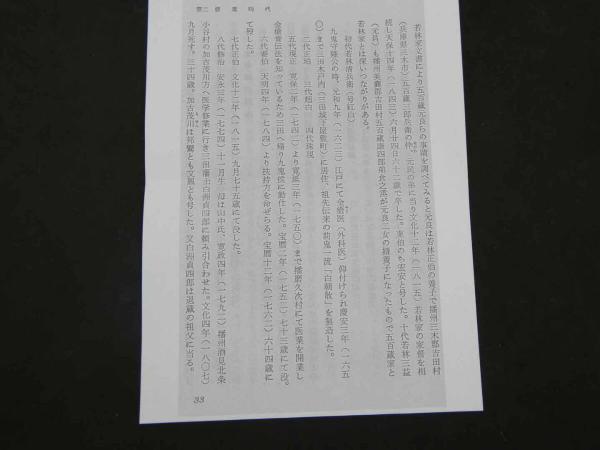 第二章 藩時代
若林家文書により五百蔵元良らの事蹟を調べてみると元良は若林正伯の養子で播州三木郡吉田村
（兵庫県三木市）五百蔵三郎兵衛の忰、元民の弟に当り文化十二年（一八一五）若林家の家督を相
続し天保十四年（一八四三）六月廿四日六十三歳で卒した。東伯のち宏安と号した。十代若林三益
（元良）も播州美嚢郡吉田村五百蔵康四郎弟食之丞が元良二女の婿養子になったもので五百蔵家と
若林家とは深いつながりがある。
初代若林清兵衛（号紅山）
九鬼守隆公の時、元和九年（一六二三）江戸にて金瘡医（外科医）仰付けられ慶安三年（一六五
〇）まで三田木戸内（三田城下屋敷町）に居住、祖先伝来の前鬼一流「白朝散」を製造した。
二代正地 三代趙白 四代珠現
五代現正 寛保二年（一七四二）より寛延三年（一七五〇）まで播磨久次村にて医業を開業し
金瘡骨伝法を知っているため三田へ帰り九鬼候に勤仕した。宝暦二年（一七五二）七十三歳にて没。
六代車伯 天明四年（一七八四）より扶持方を命ぜらる。宝暦十二年（一七六二）六十四歳に
て歿した。
七代正伯 文化十二年（一八一五）九月七十五歳にて没した。
八代修治 安永三年（一七七四）十一月生 母は山中氏、寛政四年（一七九二）播州酒見北条
小谷村の加古茂川方へ医学修業に行き三田藩士白洲貞四郎に頼み引合わせた。文化四年（一八〇七）
九月死す。三十四歳。加古茂川は邦鷲とも文鳳とも号した。又白洲貞四郎は退蔵の祖父に当る。
33